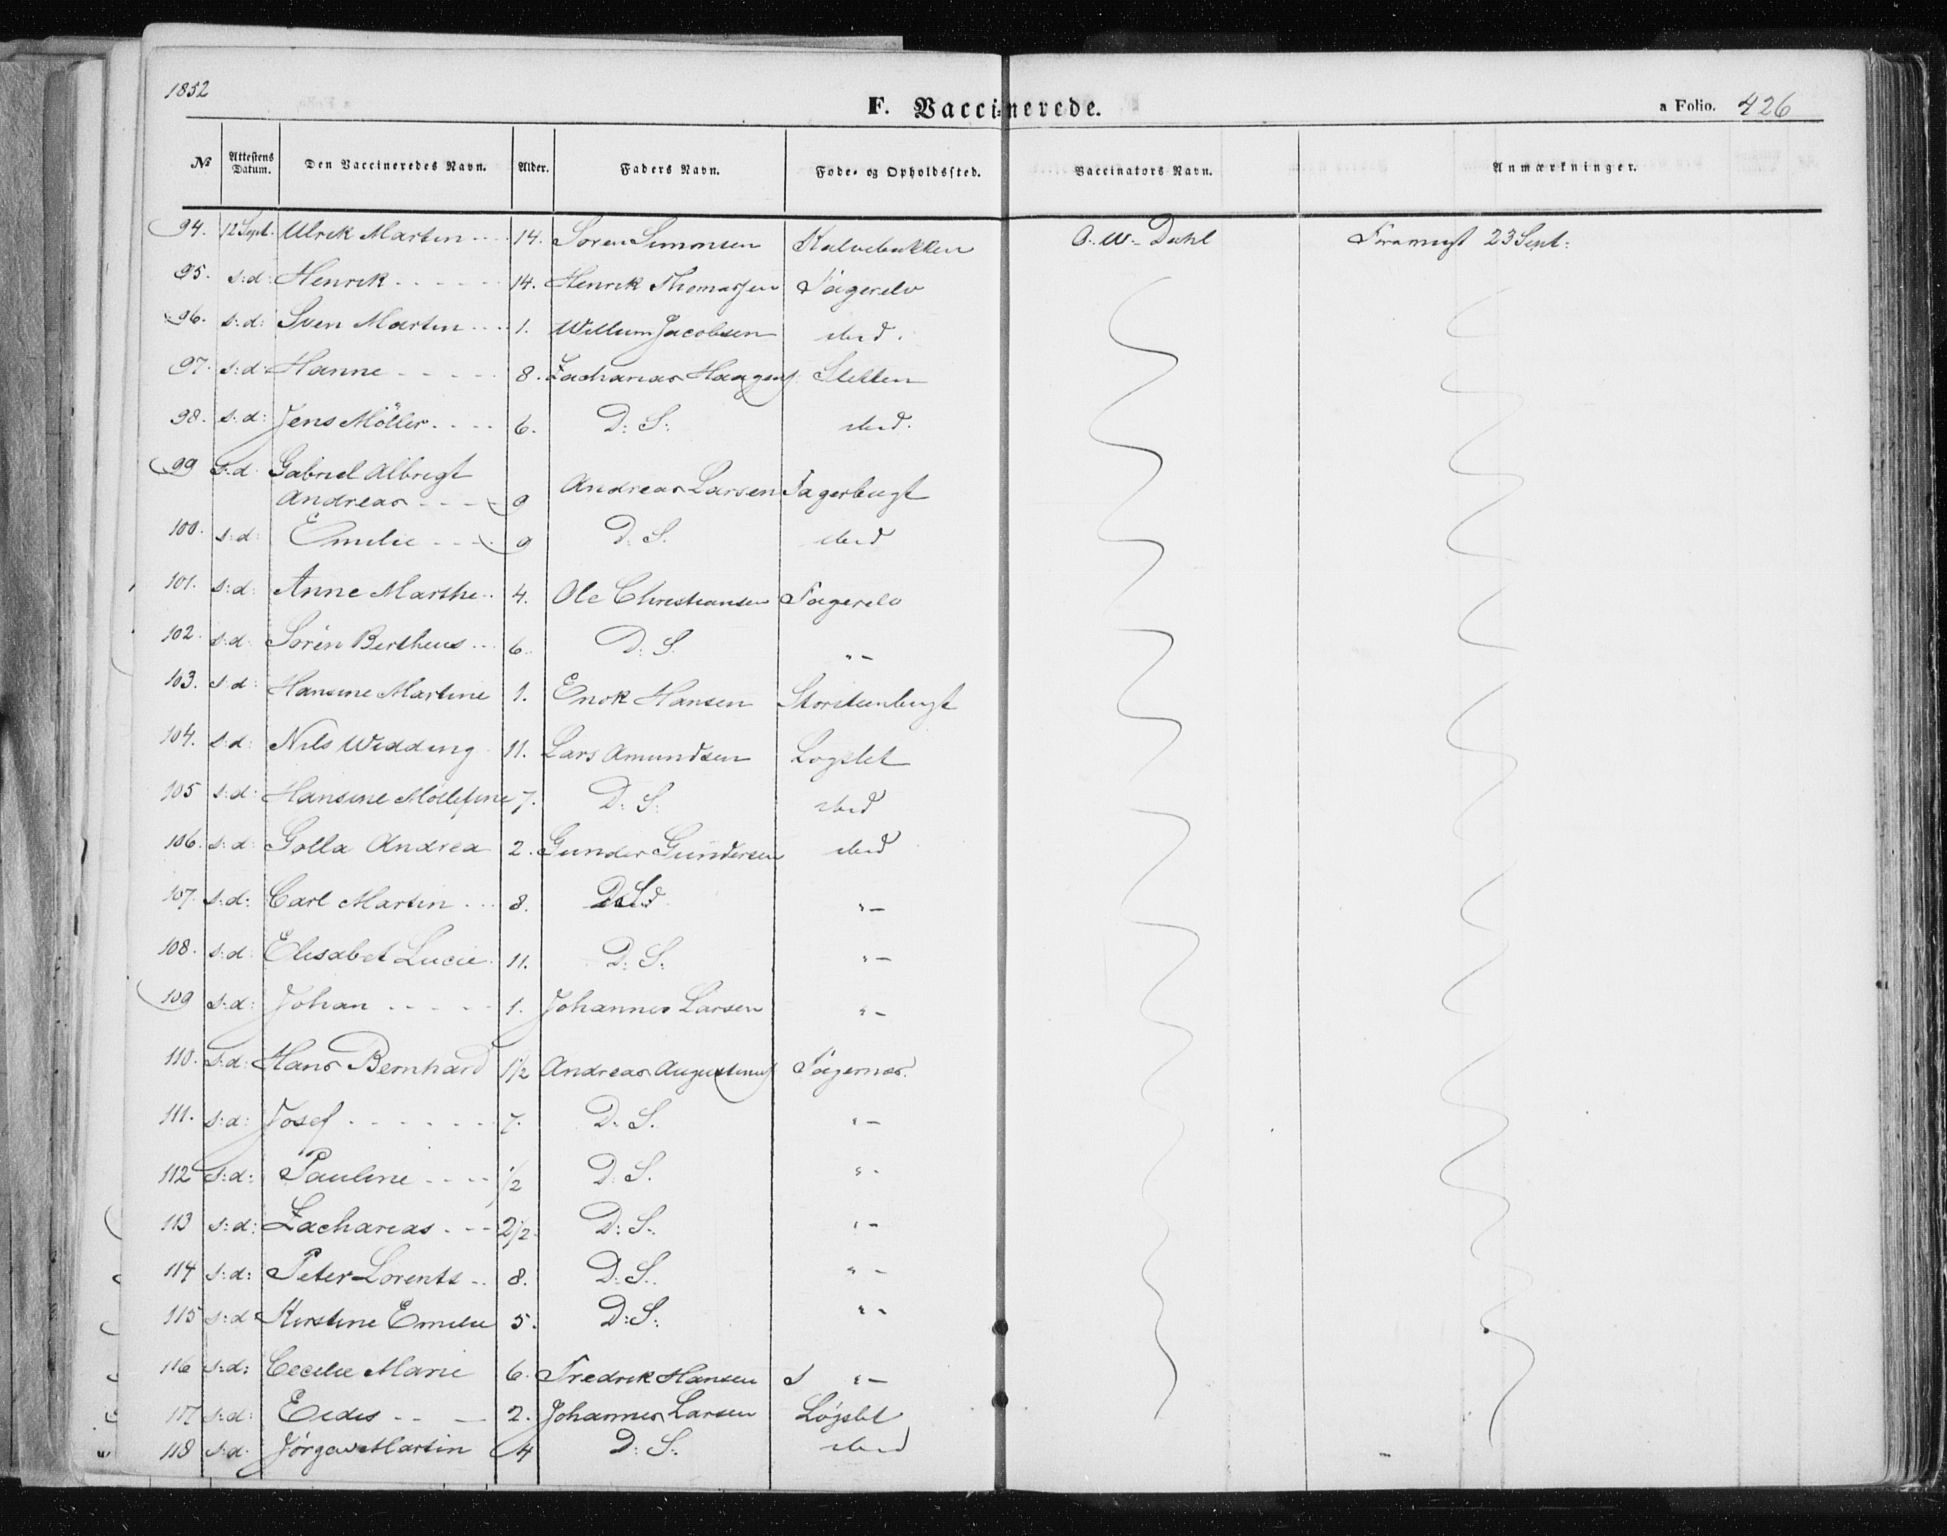 1852
F. Vaccinerede.
a Folio. 426
№ Attestens Datum. Den Vaccineredes Navn. Alder. Faders Navn. Føde- og Opholdssted. Vaccinators Navn. Anmærkninger.
94. 12 Sept. Ulrik Martin 14. Søren Simonsen Kalvebakken O. W. Dahl Fremvist 23 Sept:
95. s:d: Henrik 14. Henrik Thomassen Fagerelv
96. s:d: Sven Martin 1. Willum Jacobsen ibid.
97. s:d: Hanne 8. Zacharias Haagens. Sletten
98. s:d: Jens Möller 6. D: S: ibid.
99 s.d. Gabriel Albrigt
Andreas 9 Andreas Larsen Fagerbugt
100. s:d: Emilie 9 D. S. ibid
101. s:d: Anne Marthe 4. Ole Christiansen Fagerelv
102. s.d. Sørin Bertheus 6. D: S. "–
103. s.d: Hansine Martine 1. Enok Hansen Storsteenbugt
104. s.d: Nils Widding 11. Lars Amundsen Logslet
105 s.d: Hansine Möllefine 7. D: S. ibid
106. s:d: Golla Andrea 2. Gunder Gundersen ibid
107. s.d: Carl Martin 8. D S "–
108. s.d: Elisabet Lucie 11. D: S: "–
109 s.d: Johan 1. Johannes Larsen "–
110. s.d: Hans Bernhard 1½ Andreas Augustinus. Fagernes.
111. s:d: Josef 7. D. S. "–
112 s:d: Pauline ½ D. S. "-
113 s:d: Zacharias 2½ D: S. "–
114 s:d: Peter Lorents 8. D: S. "–
115 s:d Kirstine Emilie 5. D:S: "-
116 s:d: Cecilie Marie 6. Fredrik Hansen "–
117 s:d: Eedis 2. Johannes Larsen Løgslet
118 s:d. Jørgen Martin 4 D: S: ibid